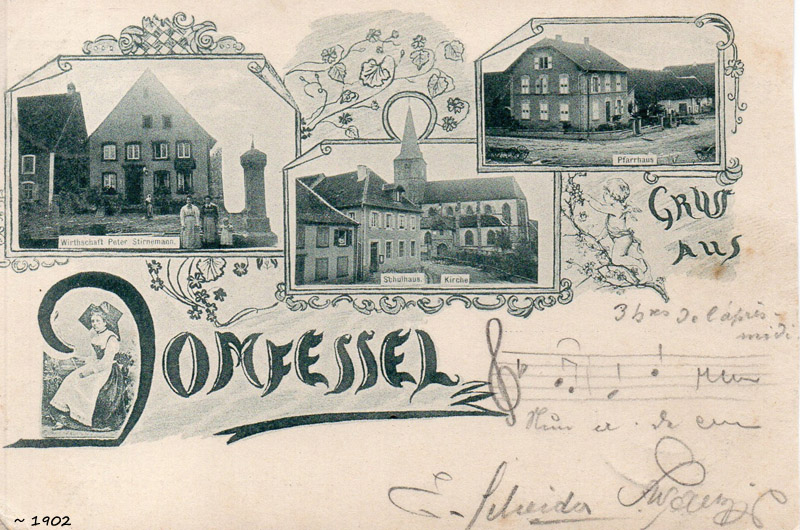 Wirthschaft Peter Stirnemann.
Schulhaus. Kirche
Pfarrhaus
GRUSS
AUS
DOMFESSEL
3 hres de l'après
midi
~ 1902